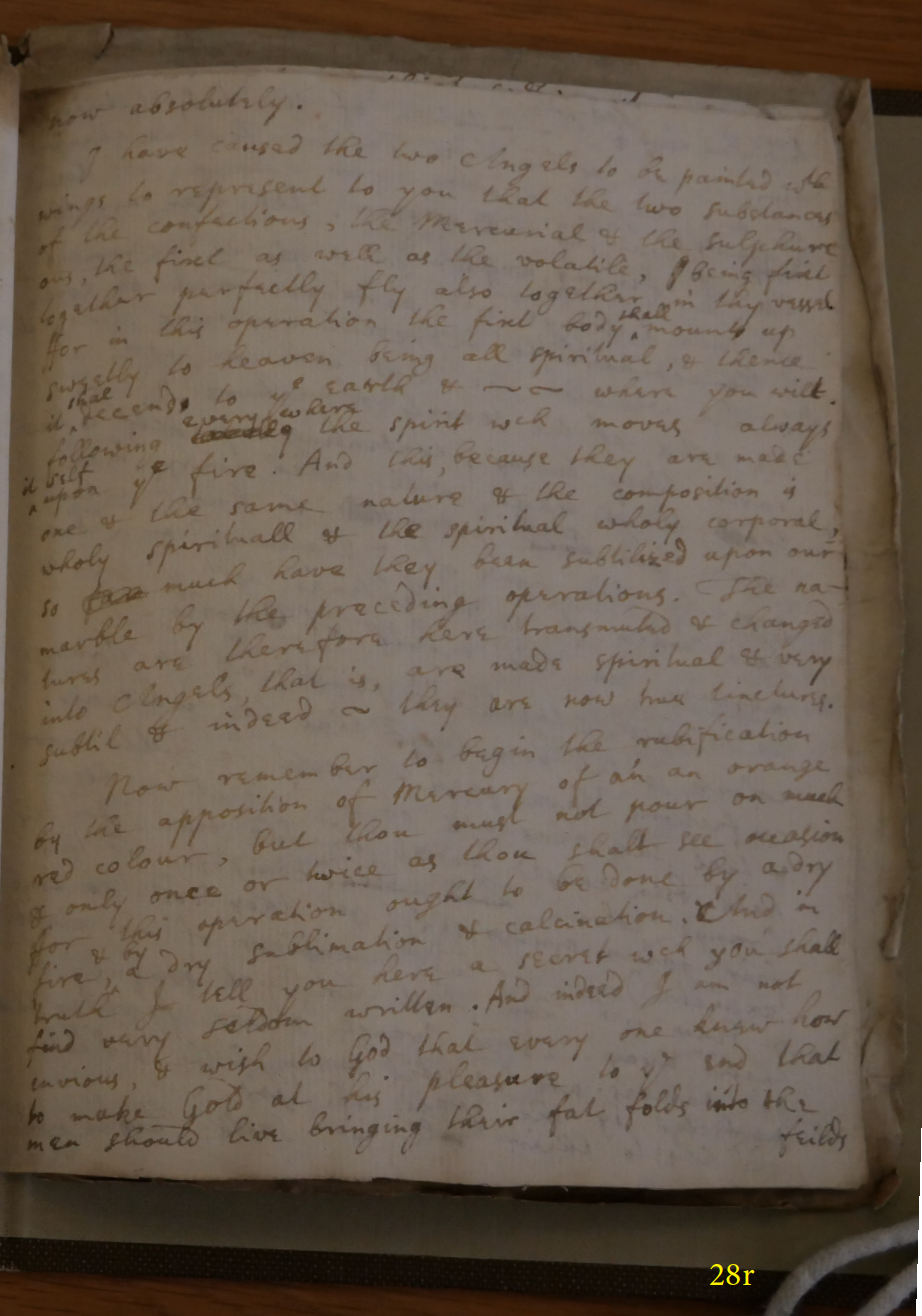 now absolutely.
I have caused the two Angels to be painted wth
wings to represent to you that the two substances
of the confections, the Mercurial & the sulphure
ous, the fixt as well as the volatile, being fixt
together perfectly fly also together in thy vessel
ffor in this operation the fixt body shall mount up
sweetly to heaven being all spiritual, & thence
it shal decend to ye earth & ~ ~ where you wilt.
following every where the spirit wch moves always
it self upon ye fire. And this, because they are made
one & the same nature & the composition is
wholy spirituall & the spiritual wholy corporal,
so much have they been subtilized upon our
marble by the preceding operations. The na-
tures are therefore here transmuted & changed
into Angels, that is, are made spiritual & very
subtil & indeed ~ they are now true tinctures.
Now remember to begin the rubification
by the apposition of Mercury of an an orange
red colour, but thou must not pour on much
& only once or twice as thou shalt see occasion
ffor this operation ought to be done by a dry
fire, & by a dry sublimation & calcination. And in
truth I tell you here a secret wch you shall
find very seldom written. And indeed I am not
envious, & wish to God that every one knew how
to make Gold at his pleasure to ye end that
men should live bringing their fat folds into the
feilds
28r